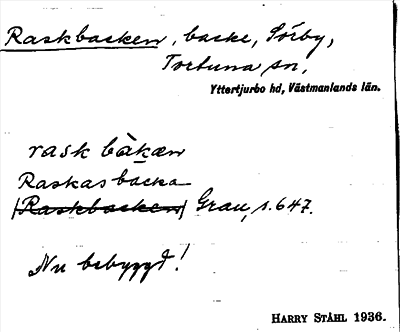 Raskbacken, backe, Sörby,
Tortuna sn,
Yttertjurbo hd, Västmanlands län.
rask bàkæn
Raskasbacka
(Raskbacken) Grau, s. 647.
Nu bebyggd!
HARRY STÅHL 1936.